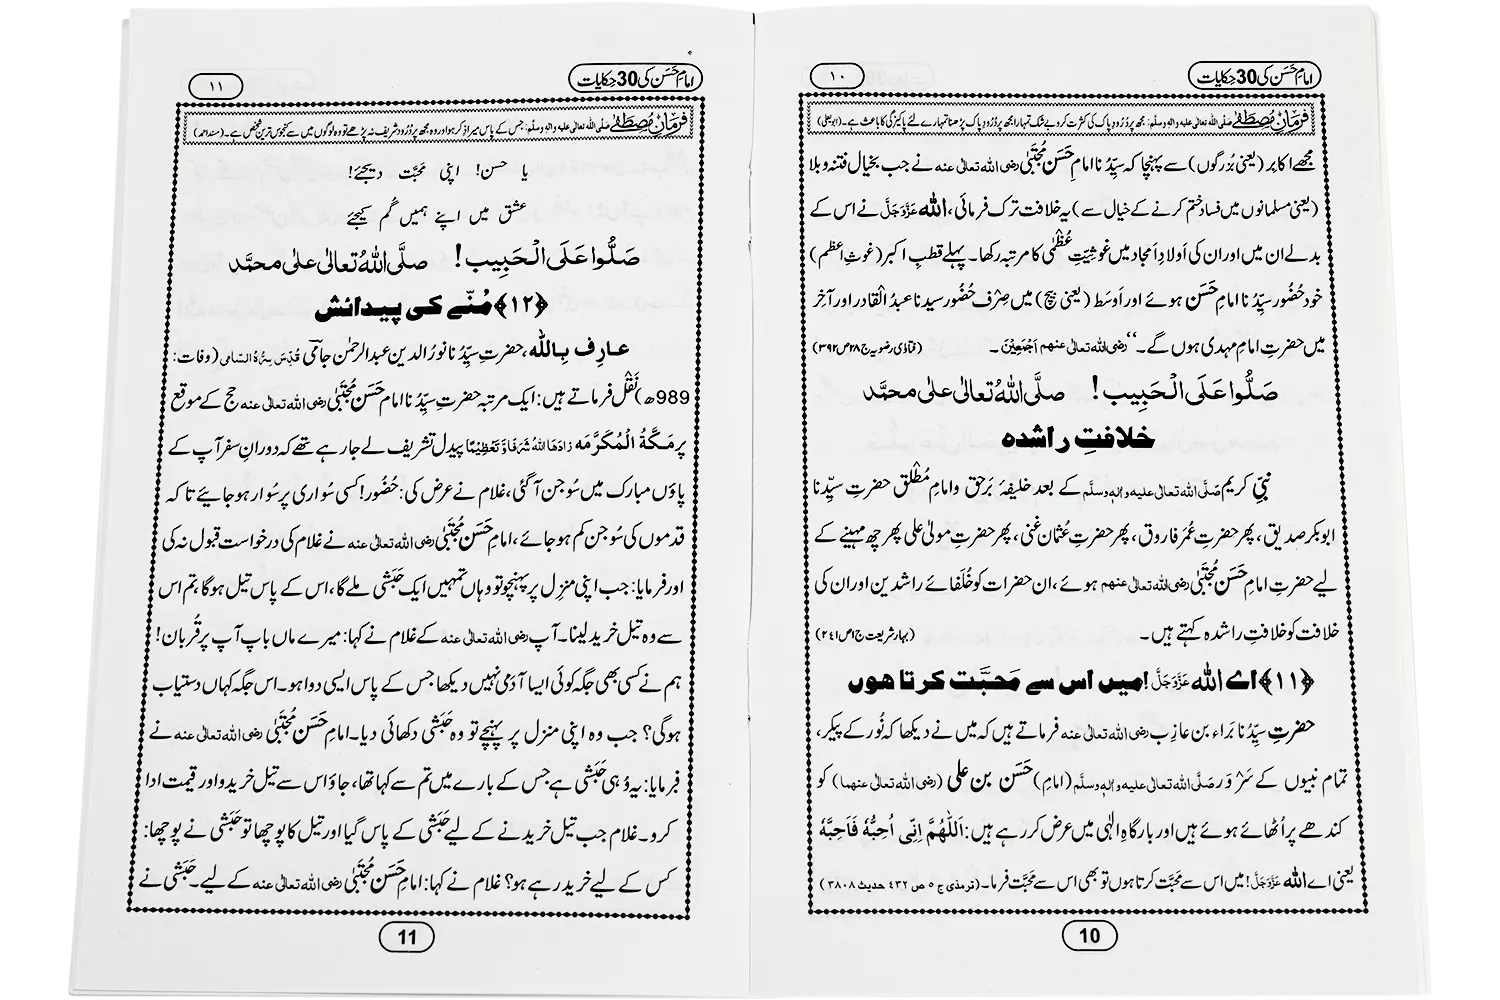 امامِ حَسَن کی 30 حِکایات
١٠
فرمانِ مُصطَفٰے صلَّی اللہ تعالٰی علیہ واٰلہٖ وسلَّم: مجھ پر دُرُودِ پاک کی کثرت کرو بے شک تمہارا مجھ پر دُرُودِ پاک پڑھنا تمہارے لئے پاکیزگی کا باعث ہے۔ (ابو یعلیٰ)
مجھے اکابِر (یعنی بُزرگوں) سے پہنچا کہ سیِّدُنا امام حَسَن مُجتَبیٰ رضی اللہ تعالٰی عنہ نے جب بخیالِ فتنہ و بلا
(یعنی مسلمانوں میں فساد ختم کرنے کے خیال سے) یہ خلافت ترک فرمائی، اللہ عَزَّوَجَلَّ نے اس کے
بدلے ان میں اور ان کی اَولادِ اَمجاد میں غوثِیّتِ عُظمٰی کا مرتبہ رکھا۔ پہلے قطبِ اکبر (غوثِ اعظم)
خود حُضُور سیِّدُنا امام حَسَن ہوئے اور اَوسَط (یعنی بیچ) میں صِرف حُضُور سیدنا عبدُ القادِر اور آخِر
میں حضرتِ امام مہدی ہوں گے۔‘‘ رضی اللہ تعالٰی عنہم اَجْمَعِیْنَ۔ (فتاوٰی رضویہ ج٢٨ ص٣٩٢)
صَلُّوا عَلَی الْحَبِیب! صلَّی اللہُ تعالٰی علٰی محمَّد
خلافتِ راشدہ
نبیِّ کریم صَلَّی اللہ تعالٰی علیہ واٰلہٖ وسلَّم کے بعد خلیفۂ بَرحق و امامِ مُطْلَق حضرتِ سیِّدُنا
ابوبکر صدیق، پھر حضرتِ عُمَر فاروق، پھر حضرتِ عُثمان غنی، پھر حضرتِ مولیٰ علی پھر چھ مہینے کے
لیے حضرتِ امام حَسَن مُجتَبیٰ رضی اللہ تعالٰی عنہم ہوئے، ان حضرات کو خُلَفائے راشدین اور ان کی
خلافت کو خلافتِ راشدہ کہتے ہیں۔ (بہارِ شریعت ج١ ص٢٤١)
﴿١١﴾ اے اللہ عَزَّوَجَلَّ! میں اس سے مَحبَّت کرتا ہوں
حضرتِ سیِّدُنا بَراء بن عازِب رضی اللہ تعالٰی عنہ فرماتے ہیں کہ میں نے دیکھا کہ نُور کے پیکر،
تمام نبیوں کے سَرْوَر صَلَّی اللہ تعالٰی علیہ واٰلہٖ وسلَّم (امام) حَسَن بن علی (رضی اللہ تعالٰی عنہما) کو
کندھے پر اُٹھائے ہوئے ہیں اور بارگاہِ الٰہی میں عرض کر رہے ہیں: اَللّٰھُمَّ اِنِّی اُحِبُّہٗ فَاَحِبَّہٗ
یعنی اے اللہ عَزَّوَجَلَّ! میں اس سے مَحَبَّت کرتا ہوں تو بھی اس سے مَحَبَّت فرما۔ (ترمذی ج ٥ ص ٤٣٢ حدیث ٣٨٠٨)
10
امامِ حَسَن کی 30 حِکایات
١١
فرمانِ مُصطَفٰے صلَّی اللہ تعالٰی علیہ واٰلہٖ وسلَّم: جس کے پاس میرا ذکر ہو اور وہ مجھ پر دُرُود شریف نہ پڑھے تو وہ لوگوں میں سے کنجوس ترین شخص ہے۔ (مسند احمد)
یا حسن! اپنی مَحَبَّت دیجئے!
عشق میں اپنے ہمیں گُم کیجئے
صَلُّوا عَلَی الْحَبِیب! صلَّی اللہُ تعالٰی علٰی محمَّد
﴿١٢﴾ مُنّے کی پیدائش
عارِف بِاللہ، حضرتِ سیِّدُنا نورُ الدین عبدالرحمٰن جامی قُدِّسَ سِرُّہُ السّامی (وفات:
989ھ) نَقْل فرماتے ہیں: ایک مرتبہ حضرتِ سیِّدُنا امام حَسَن مُجتَبیٰ رضی اللہ تعالٰی عنہ حج کے موقع
پر مَکَّۃُ الْمُکَرَّمَہ زادَھَا اللہُ شَرَفًا وَّتَعْظِیْمًا پیدل تشریف لے جا رہے تھے کہ دورانِ سفر آپ کے
پاؤں مبارک میں سُوجن آ گئی، غلام نے عرض کی: حُضُور! کسی سواری پر سُوار ہو جائیے تا کہ
قدموں کی سُوجن کم ہو جائے، امام حَسَن مُجتَبیٰ رضی اللہ تعالٰی عنہ نے غلام کی درخواست قبول نہ کی
اور فرمایا: جب اپنی منزل پر پہنچو تو وہاں تمہیں ایک حَبَشی ملے گا، اس کے پاس تیل ہوگا، تم اس
سے وہ تیل خرید لینا۔ آپ رضی اللہ تعالٰی عنہ کے غلام نے کہا: میرے ماں باپ آپ پر قُربان!
ہم نے کسی بھی جگہ کوئی ایسا آدَمی نہیں دیکھا جس کے پاس ایسی دوا ہو۔ اس جگہ کہاں دستیاب
ہوگی؟ جب وہ اپنی منزل پر پہنچے تو وہ حَبَشی دکھائی دیا۔ امام حَسَن مُجتَبیٰ رضی اللہ تعالٰی عنہ نے
فرمایا: یہ وُہی حَبَشی ہے جس کے بارے میں تم سے کہا تھا، جاؤ اس سے تیل خریدو اور قیمت ادا
کرو۔ غلام جب تیل خریدنے کے لیے حَبَشی کے پاس گیا اور تیل کا پوچھا تو حَبَشی نے پوچھا:
کس کے لیے خرید رہے ہو؟ غلام نے کہا: امام حَسَن مُجتَبیٰ رضی اللہ تعالٰی عنہ کے لیے۔ حَبَشی نے
11